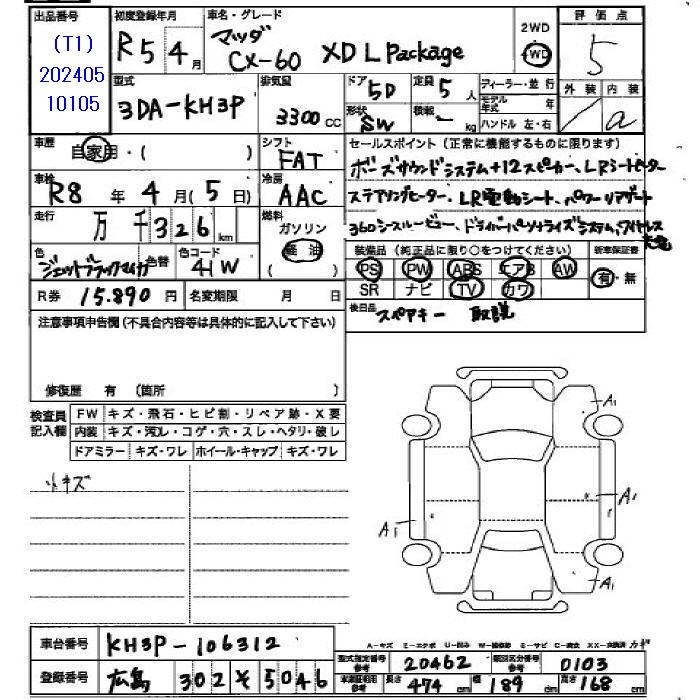 出品番号
(T1)
202405
10105
初度登録年月
R5 4 月
車名・グレード
マツダ
CX-60 XD L Package
2WD
4WD
評価点
5
外装 内装
a
型式
3DA-KH3P
排気量
3300 cc
ドア 5D
定員 5 人
形状 SW
積載 kg
ディーラー・並行
モデル年式 年
ハンドル 左・右
車歴
自家用・( )
シフト
FAT
車検
R8 年 4 月 ( 5 日)
冷房
AAC
走行
万 千 326 km
燃料
ガソリン
軽油
( )
色
ジェットブラックマイカ
色替
色コード
41W
セールスポイント (正常に機能するものに限ります)
ボーズサウンドシステム+12スピーカー、LRシートヒーター
ステアリングヒーター、LR電動シート、パワーリアゲート
360シースルービュー、ドライバーパーソナライズシステム、ワイヤレス充電
装備品 (純正品に限り○をつけてください)
新車保証書
PS PW ABS エアB AW
SR ナビ TV カワ
有・無
R券 15,890 円
名変期限 月 日
後日品
スペアキー 取説
注意事項申告欄(不具合内容等は具体的に記入して下さい)
修復歴 有 (箇所 )
検査員
記入欄
FW キズ・飛石・ヒビ割・リペア跡・X要
内装 キズ・汚れ・コゲ・穴・スレ・ヘタリ・破レ
ドアミラー キズ・ワレ ホイール・キャップ キズ・ワレ
小キズ
A1
A1
A1
A1
車台番号 KH3P-106312
登録番号 広島 302 そ 5046
型式指定番号
参考
20462
類別区分番号
参考
0103
車検証明用
参考
長さ 474 cm 幅 189 cm 高さ 168 cm